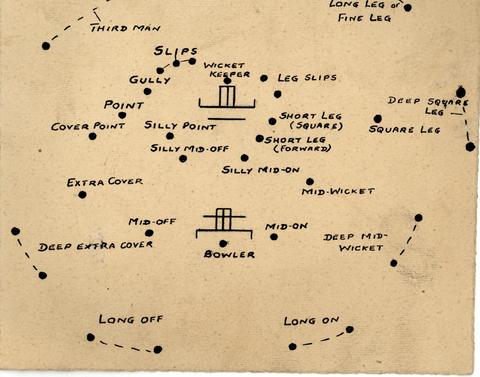 LONG LEG or
FINE LEG
THIRD MAN
SLIPS
WICKET
KEEPER
GULLY
LEG SLIPS
POINT
DEEP SQUARE
LEG
COVER POINT
SILLY POINT
SHORT LEG
(SQUARE)
SQUARE LEG
SILLY MID-OFF
SHORT LEG
(FORWARD)
SILLY MID-ON
EXTRA COVER
MID-WICKET
MID-OFF
MID-ON
DEEP EXTRA COVER
DEEP MID-
WICKET
BOWLER
LONG OFF
LONG ON